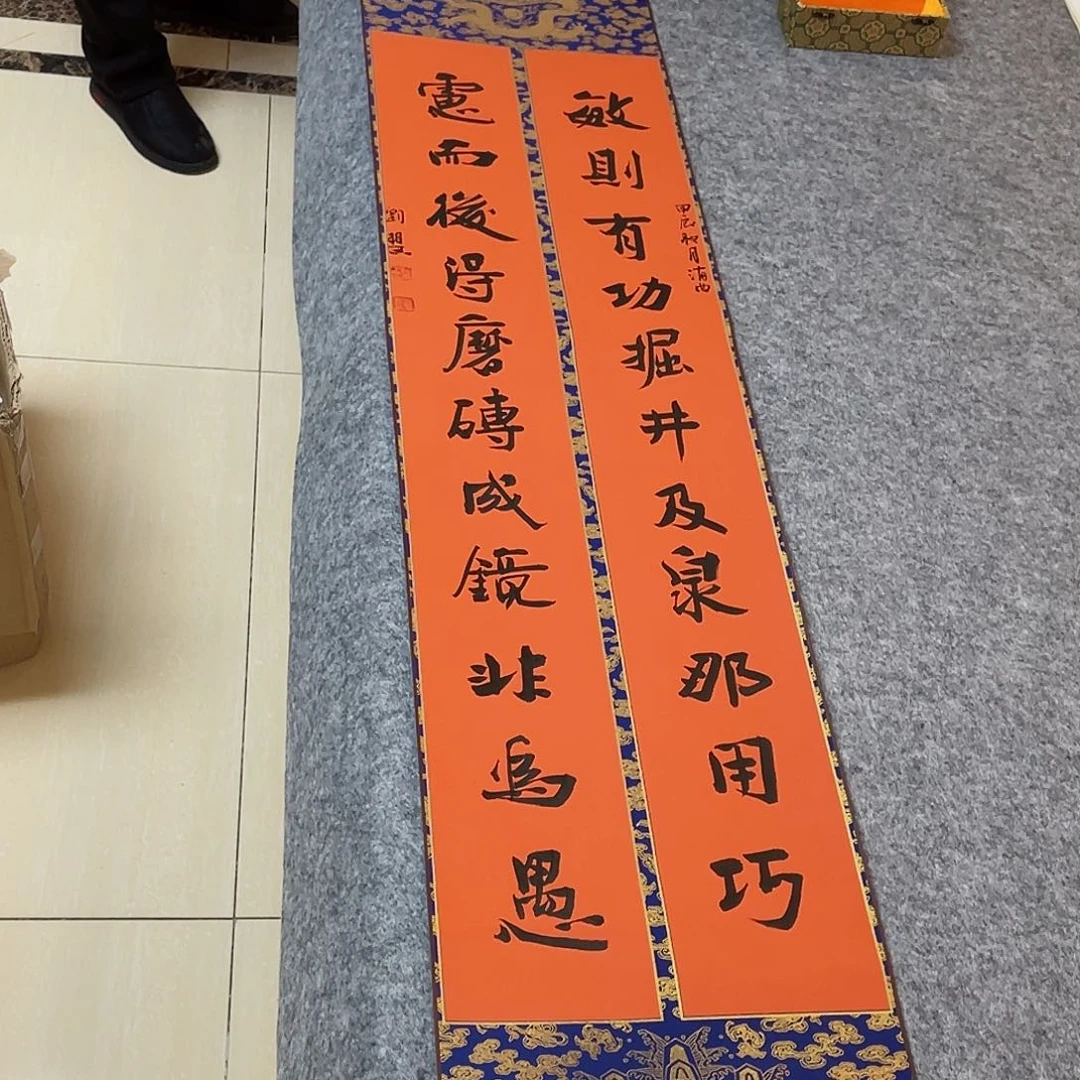 敏則有功掘井及泉那用巧
甲辰秋月
慮而後得磨磚成鏡非為愚
劉